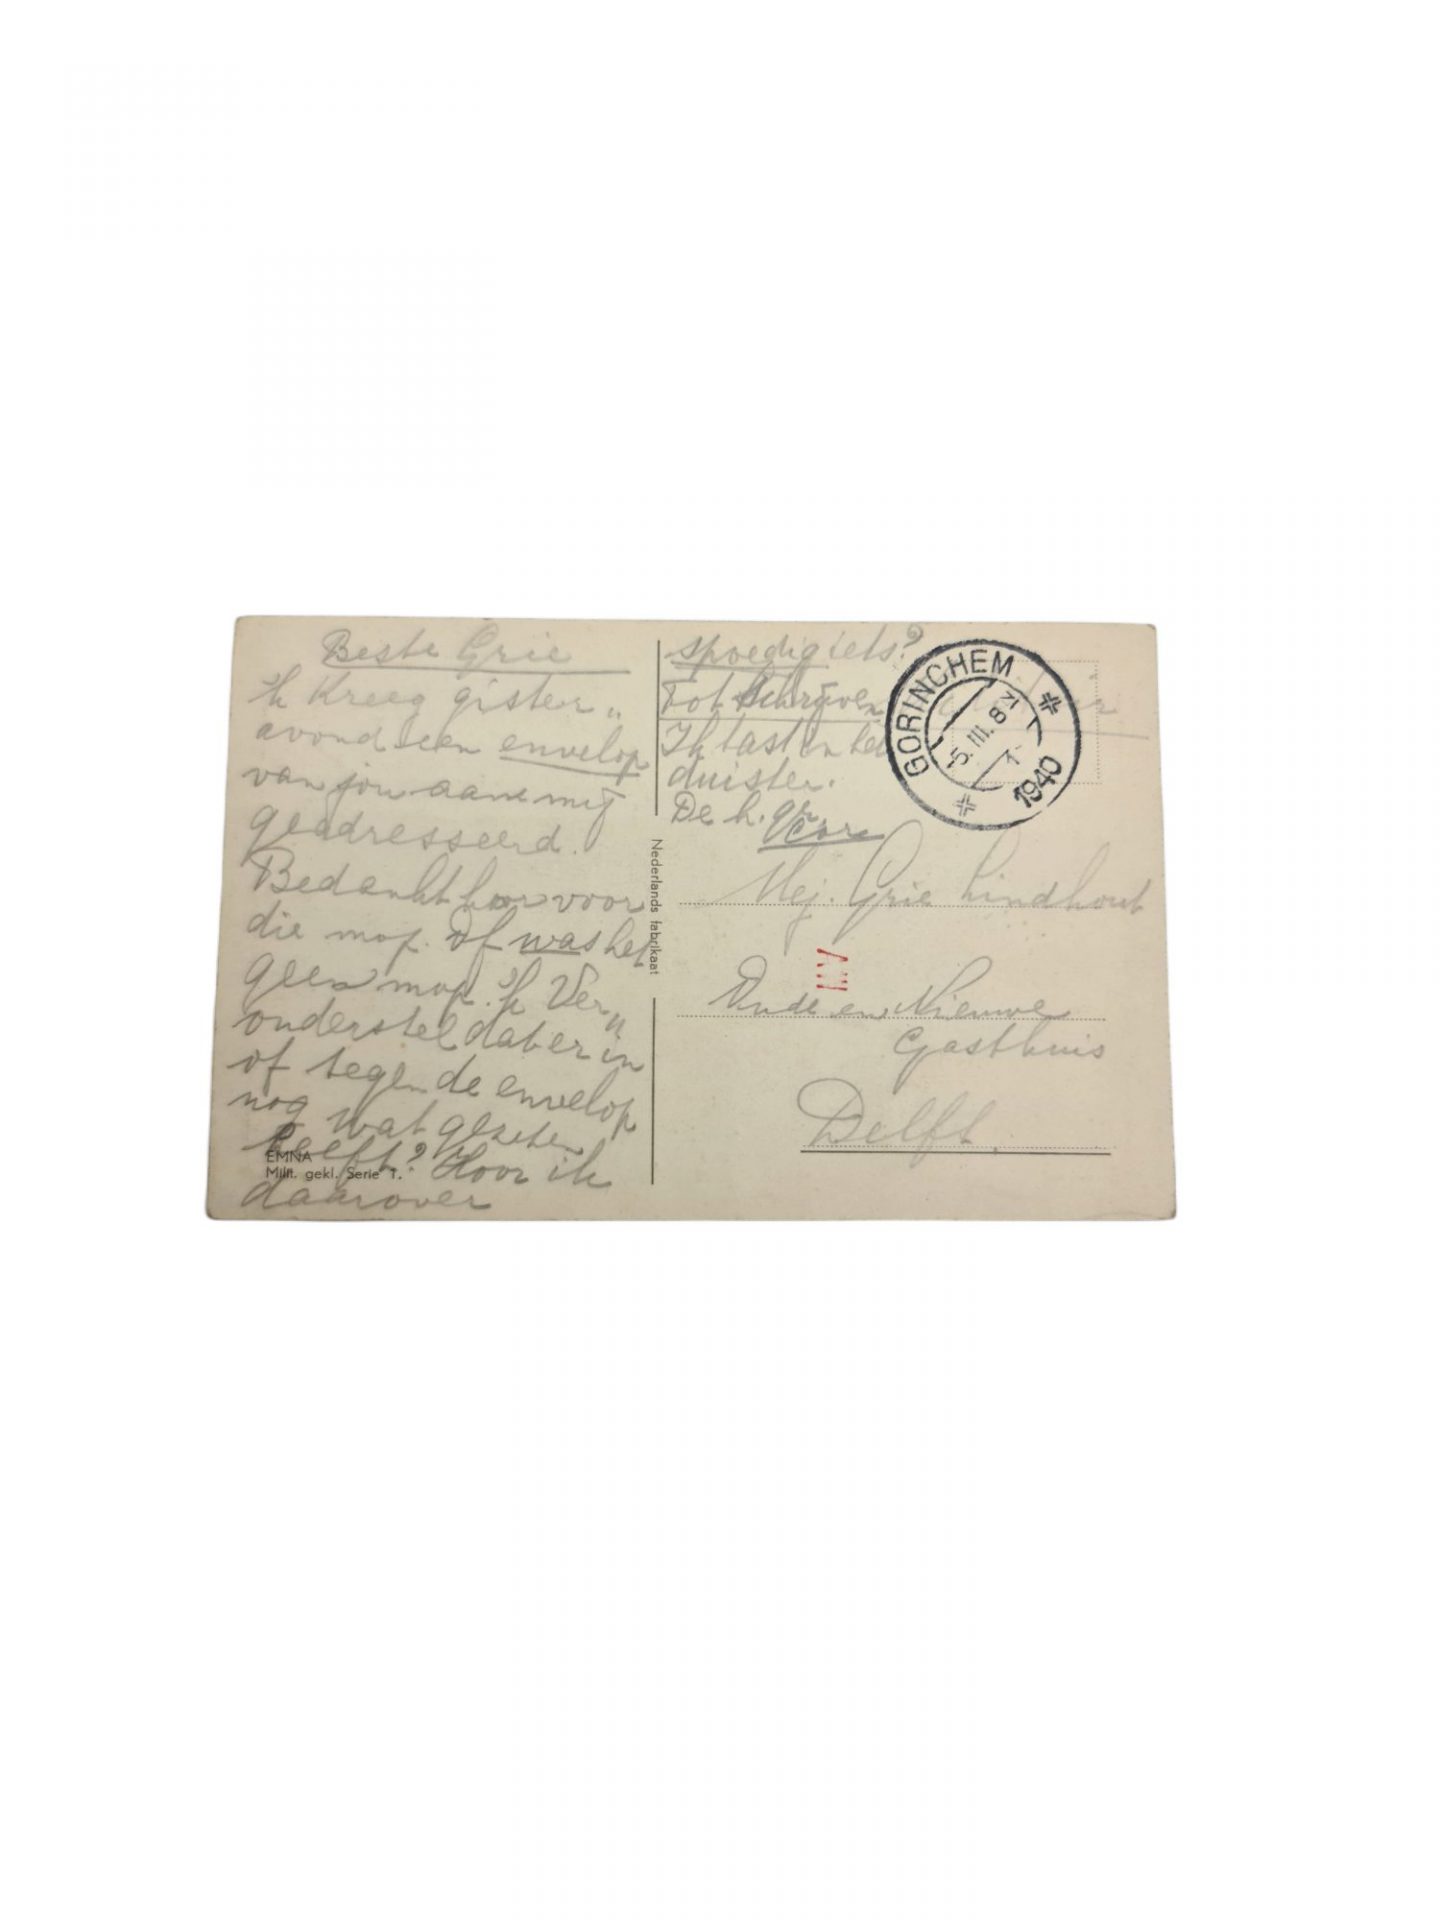 Beste Grie
'k Kreeg gister„
avond een envelop
van jou aan mij
geadresseerd.
Bedankt hoor voor
die mop. Of was het
geen mop. 'k Ver„
onderstel dat er in
of tegen de envelop
nog wat gezeten
heeft? Hoor ik
daarover
EMNA
Milit. gekl. Serie 1.
Nederlands fabrikaat
spoedig iets?
Tot schrijven
Ik tast in het
duister.
De h. gr.
Cor
GORINCHEM
-5.III.8
1940
Mej. Grie Lindhout
Oude en Nieuwe
Gasthuis
Delft.